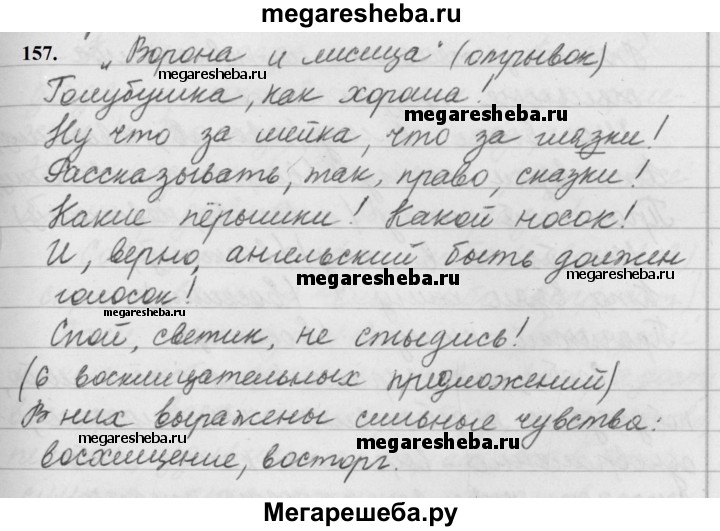 megaresheba.ru
157. „Ворона и лисица“ (отрывок)
megaresheba.ru
Голубушка, как хороша!
megaresheba.ru
Ну что за шейка, что за глазки!
Рассказывать, так, право, сказки!
Какие пёрышки! Какой носок!
И, верно, ангельский быть должен
megaresheba.ru
megaresheba.ru
голосок!
Спой, светик, не стыдись!
(6 восклицательных предложений)
В них выражены сильные чувства:
megaresheba.ru
megaresheba.ru
восхищение, восторг.
Мегарешеба.ру